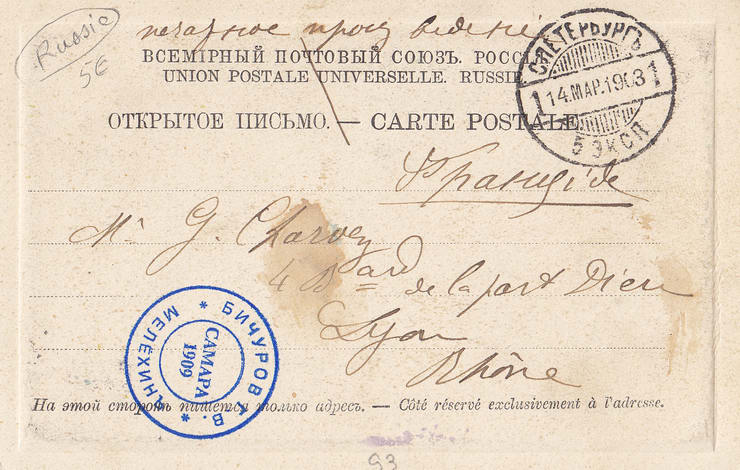 Russie
5€
ВСЕМІРНЫЙ ПОЧТОВЫЙ СОЮЗЪ. РОССІЯ
UNION POSTALE UNIVERSELLE. RUSSIE.
С.ПЕТЕРБУРГЪ
1 14.МАР.1903 1
5 ЭКСП
ОТКРЫТОЕ ПИСЬМО. — CARTE POSTALE
Mr G. Charvey
4 Bard de la part Dieu
Lyon
Rhône
БИЧУРОВ Г.В. * МЕЛЕХИНЪ *
САМАРА
1909
На этой сторонѣ пишется только адресъ. — Côté réservé exclusivement à l'adresse.
93